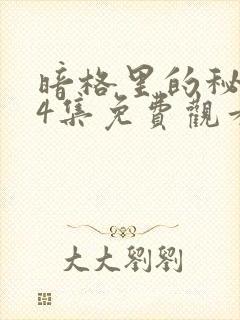 暗格里的秘
4集免費觀
大大劉劉